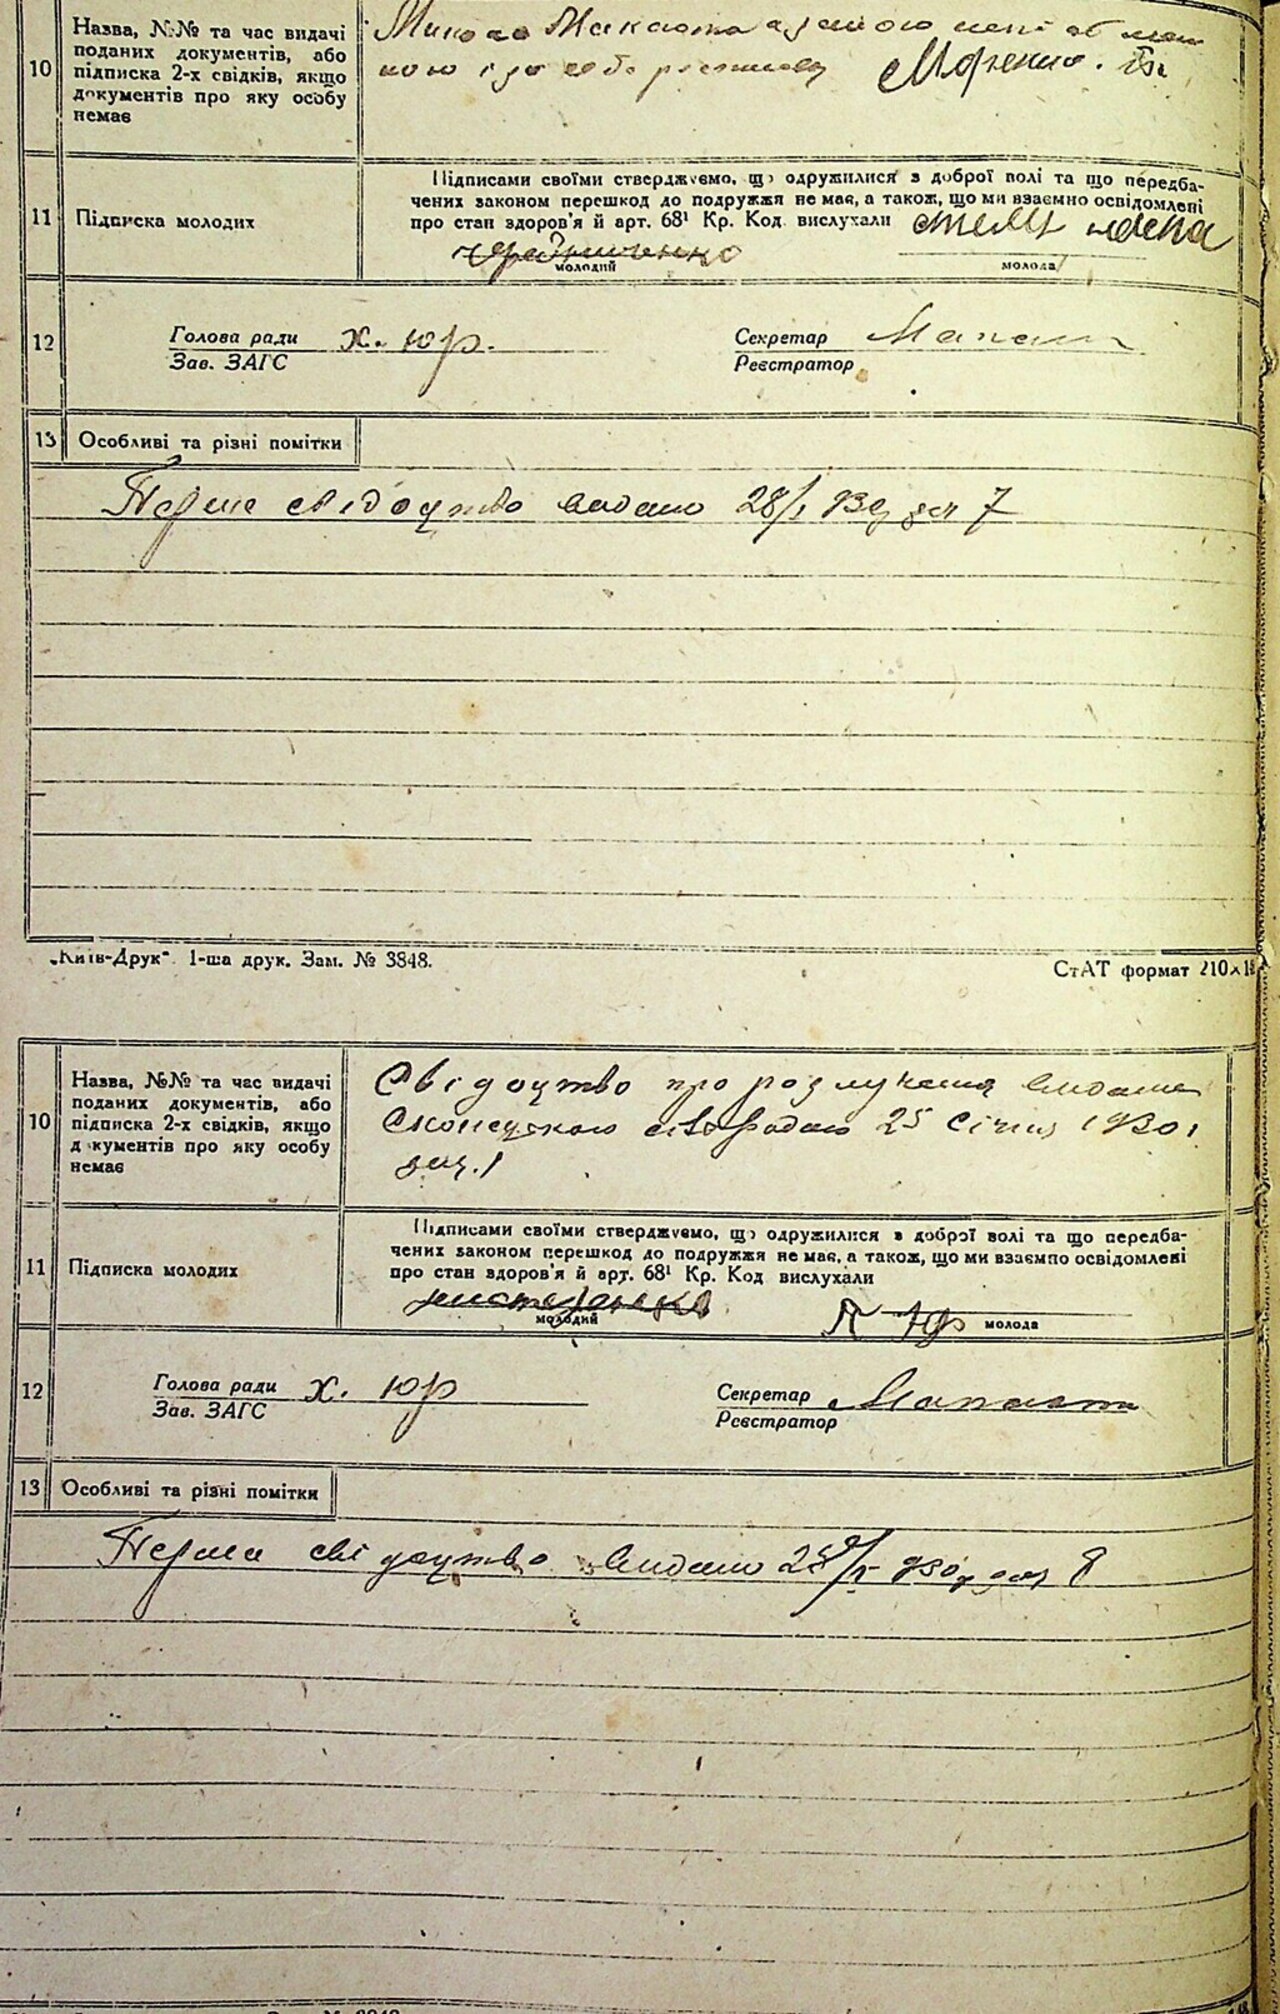 10
Назва, №№ та час видачі
поданих документів, або
підписка 2-х свідків, якщо
документів про яку особу
немає
Микола
11
Підписка молодих
Підписами своїми стверджуємо, що одружилися з доброї волі та що передба-
чених законом перешкод до подружжя не має, а також, що ми взаємно освідомлені
про стан здоров'я й арт. 68¹ Кр. Код. вислухали
Чередниченко
молодий
молода
12
Голова ради Х. Юр.
Зав. ЗАГС
Секретар
Реєстратор
13
Особливі та різні помітки
Перше свідоцтво видано 28/I 930 за 7
„Київ-Друк“ 1-ша друк. Зам. № 3848.
СтАТ формат 210×1
10
Назва, №№ та час видачі
поданих документів, або
підписка 2-х свідків, якщо
документів про яку особу
немає
Свідоцтво про розлучення видане
25 січня 1930
11
Підписка молодих
Підписами своїми стверджуємо, що одружилися з доброї волі та що передба-
чених законом перешкод до подружжя не має, а також, що ми взаємно освідомлені
про стан здоров'я й арт. 68¹ Кр. Код вислухали
молодий
молода
12
Голова ради Х. Юр
Зав. ЗАГС
Секретар
Реєстратор
13
Особливі та різні помітки
свідоцтво видано